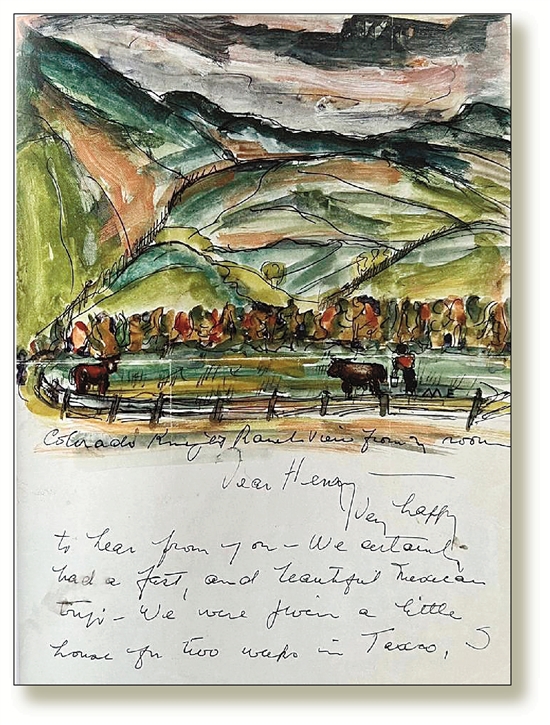 ME
Colorado Ranch View from my room
Dear Henry —
Very happy
to hear from you – We certainly
had a fast, and beautiful Mexican
trip – We were given a little
house for two weeks in Taxco, S